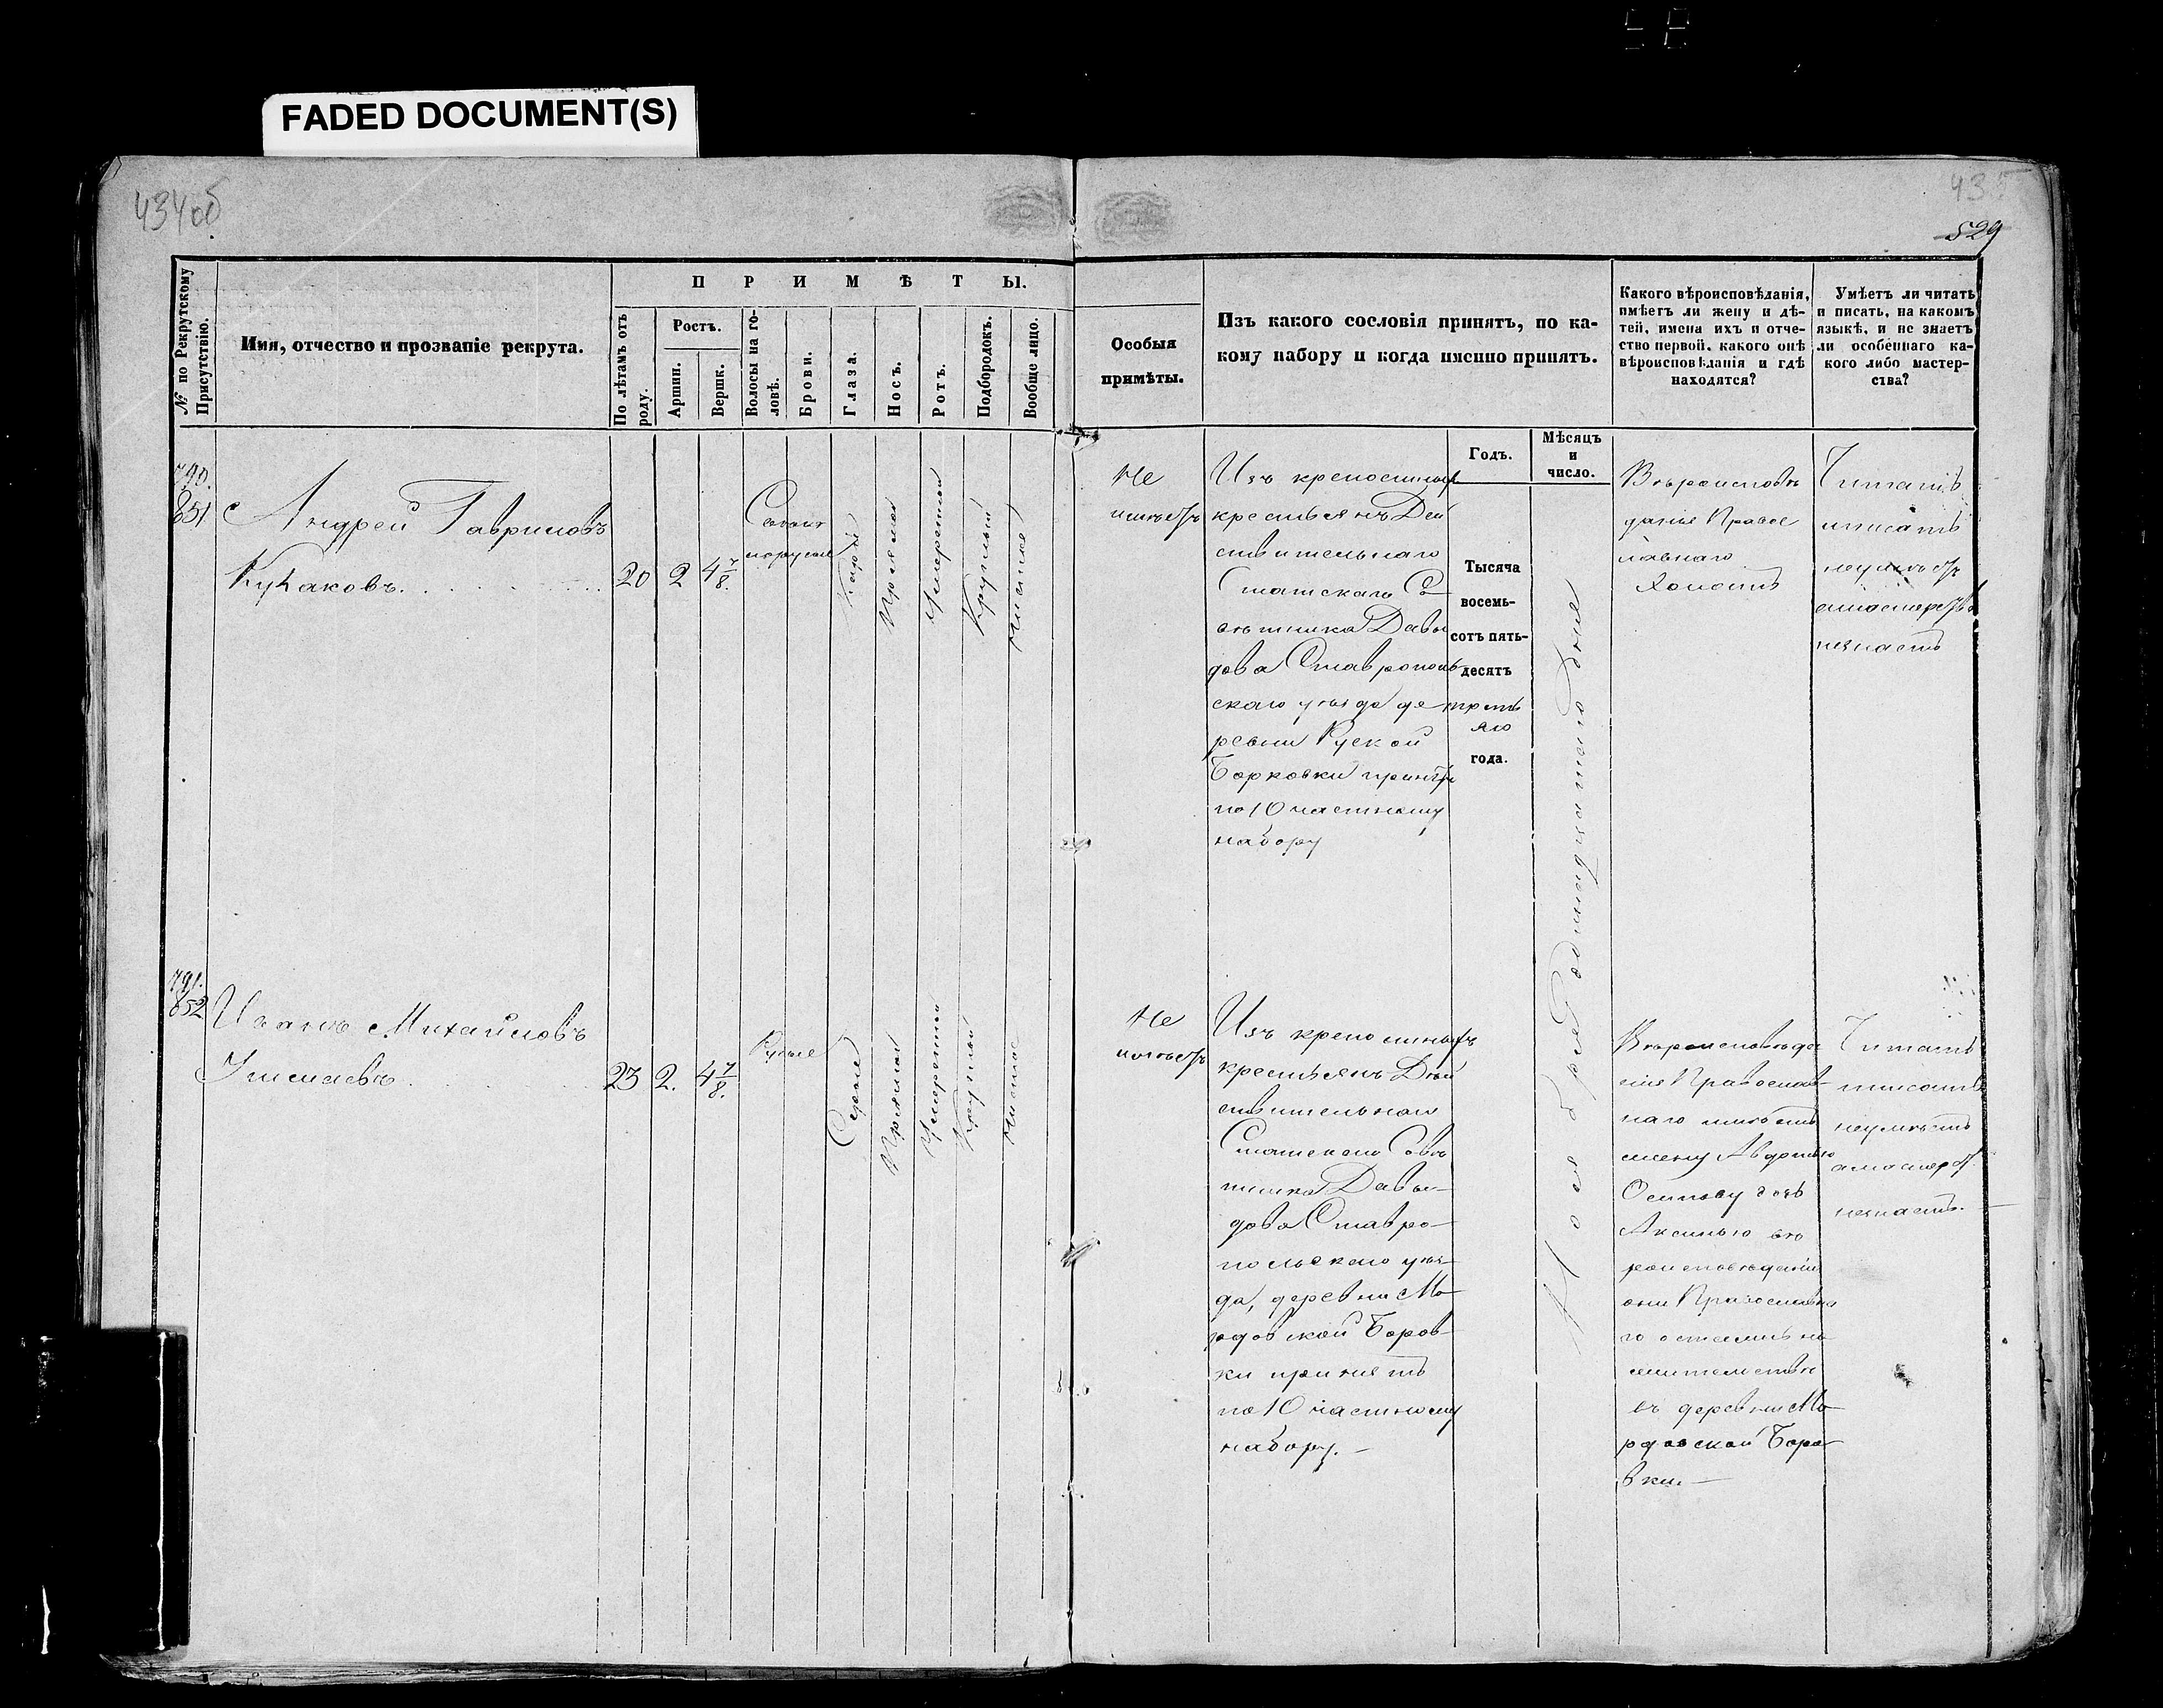 FADED DOCUMENT(S)
434об
435
529
№ по Рекрутскому Присутствію.
Имя, отчество и прозваніе рекрута.
ПРИМѢТЫ.
По лѣтамъ отъ роду.
Ростъ.
Аршин.
Вершк.
Волосы на головѣ.
Брови.
Глаза.
Носъ.
Ротъ.
Подбородокъ.
Вообще лицо.
Особыя
примѣты.
Изъ какого сословія принятъ, по ка-
кому набору и когда именно принятъ.
Какого вѣроисповѣданія,
имѣетъ ли жену и дѣ-
тей, имена ихъ и отче-
ство первой, какого онѣ
вѣроисповѣданія и гдѣ
находятся?
Умѣетъ ли читать
и писать, на какомъ
языкѣ, и не знаетъ
ли особеннаго ка-
кого либо мастер-
ства?
Годъ.
Мѣсяцъ
и
число.
790.
851
Андрей Гавриловъ
Кулаковъ.
20 2 4 7/8.
Карие
Прямой
Умеренный
Круглый
Чистое
Не
имѣетъ
Изъ крепостныхъ
крестьянъ Дей
ствительнаго
Статскаго Со
вѣтника Давы
дова Ставрополь
скаго уѣзда де
ревни Руской
Борковки принятъ
по 10 частному
набору
Тысяча
восемь-
сотъ пять-
десятъ
треть
яго
года.
Ноября одинадцатаго дня
Вѣроисповѣ
данія Правос
лавнаго
Холостъ
Читать
писать
неумѣетъ
мастерства
незнаетъ
791.
852
Иванъ Михайловъ
23 2. 4 7/8.
Русые
Серые
Прямой
Умеренный
Круглый
Чистое
Не
имѣетъ
Изъ крепостныхъ
крестьянъ Дѣй
ствительнаго
Статскаго Совѣ
тника Давы-
дова Ставро-
польскаго уѣз-
да, деревни Мо-
рдовской Боров-
ки принятъ
по 10 частному
набору.
Вѣроисповѣда
нія Православ-
наго имѣетъ
жену Авдотью
Осипову дочь
Аксинью вѣ
роисповѣданія
они Православна
го остались на
жительствѣ
въ деревни Мо-
рдовской Боро-
вки
Читать
писать
неумѣетъ
амастерст.
незнаетъ.